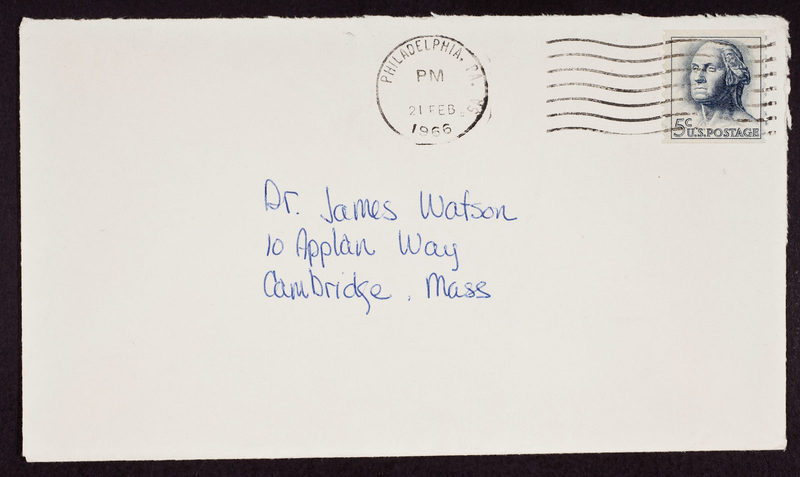 PHILADELPHIA, PA.
PM
21 FEB
1966
5c
U.S. POSTAGE
Dr. James Watson
10 Applan Way
Cambridge, Mass